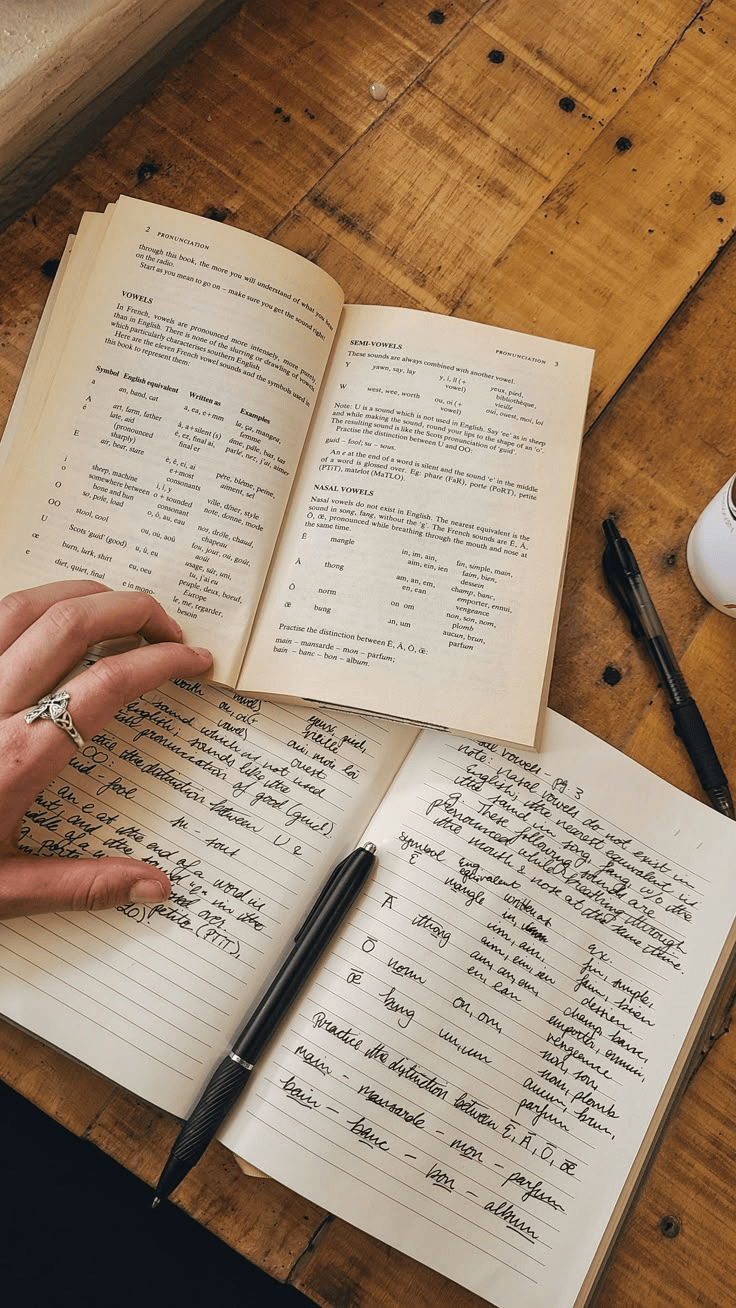 2 PRONUNCIATION
through this book, the more you will understand of what you hear
on the radio.
Start as you mean to go on – make sure you get the sound right!
VOWELS
In French, vowels are pronounced more intensely, more purely,
than in English. There is none of the slurring or drawling of vowels
which particularly characterises southern English.
Here are the eleven French vowel sounds and the symbols used in
this book to represent them:
Symbol English equivalent Written as Examples
a an, band, cat a, ea, e+mm la, ça, mangea,
femme
A art, farm, father â, a+silent (s) âme, pâle, bas, tas
é late, aid é, ez, final ai, parlé, nez, j'ai, aimer
(pronounced final er
sharply)
E air, bear, stare è, ê, ei, ai père, blême, peine,
e+most aiment, sel
consonants
i sheep, machine i, î, y ville, dîner, style
o somewhere between o + sounded note, donne, mode
bone and bun consonant
O so, pole, load o, ô, au, eau nos, drôle, chaud,
chapeau
OO stool, cool ou, où, aoû lou, jour, où, goût,
août
U Scots guid (good) u, û, eu usage, sûr, uni,
tu, j'ai eu
œ burn, lurk, shirt eu, oeu peuple, deux, boeuf,
Europe
e diet, quiet, final e in mono le, me, regarder,
besoin
PRONUNCIATION 3
SEMI-VOWELS
These sounds are always combined with another vowel.
Y yawn, say, lay y, i, ll (+ yeux, pied,
vowel) bibliothèque,
vieille
W west, wee, worth ou, oi (+ oui, ouest, moi, loi
vowel)
Note: U is a sound which is not used in English. Say 'ee' as in sheep
and while making the sound, round your lips to the shape of an 'o'.
The resulting sound is like the Scots pronunciation of 'guid'.
Practise the distinction between U and OO:
guid – fool; su – sous.
An e at the end of a word is silent and the sound 'e' in the middle
of a word is glossed over. Eg: phare (FaR), porte (PoRT), petite
(PTiT), matelot (MaTLO).
NASAL VOWELS
Nasal vowels do not exist in English. The nearest equivalent is the
sound in song, fang, without the 'g'. The French sounds are Ē, Ā,
Ō, œ̄, pronounced while breathing through the mouth and nose at
the same time.
Ē mangle in, im, ain, fin, simple, main,
aim, ein, ien faim, bien,
dessein
Ā thong am, an, em, champ, banc,
en, ean emporter, ennui,
vengeance
Ō norm on om non, son, nom,
plomb
œ̄ bung un, um aucun, brun,
parfum
Practise the distinction between Ē, Ā, Ō, œ̄:
main – mansarde – mon – parfum;
bain – banc – bon – album.
worth ou, oi(+ yeux, pied,
vowels vieille
oui, moi, loi
ouest
sound which is not used
English; sounds like the
pronunciation of good (guid).
the distinction between U &
OO:
guid - fool su - sous
an e at the end of a word is
and the sound "e" in the
middle of a
petite (PTiT),
vowels - pg. 3
note: Nasal vowels do not exist in
English; the nearest equivalent is
the sound in song, fang w/o the
g. These following sounds are
pronounced while breathing through
the mouth & nose at the same time.
symbol eng. equivalent written as ex.
Ē mangle in, im, ain, fin, simple,
aim, ein, ien faim, bien
dessien.
Ā thong am, an, em, champ, banc,
en, ean emporter, ennui,
vengeance
Ō norm on, om, non, son,
nom, plomb
œ̄ bung un, um aucun, brun,
parfum
Practice the distinction between Ē, Ā, Ō, œ̄
main - mansarde - mon - parfum
bain - banc - bon - album